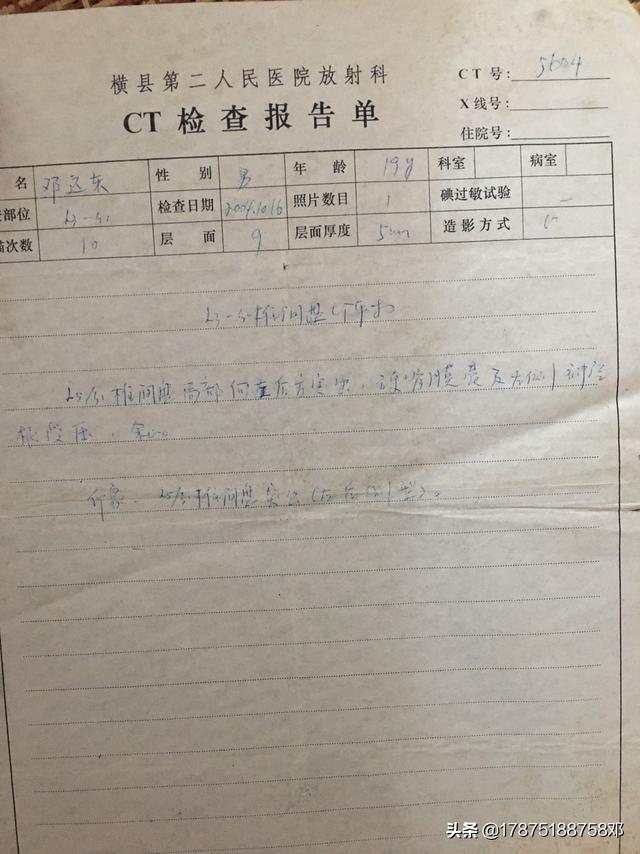 横县第二人民医院放射科
CT检查报告单
CT号: 5604
X线号:
住院号:
名 邓远东 性别 男 年龄 19y 科室 病室
部位 L3-S1 检查日期 2004.10.16 照片数目 1 碘过敏试验 -
次数 10 层面 9 层面厚度 5mm 造影方式
L3-S1椎间盘(平扫)
L5/S1椎间盘局部向左后方突出,硬脊膜囊及左侧神经
根受压,余(-)。
印象:L5/S1椎间盘突出(左后侧型)。
头条 @17875188758邓